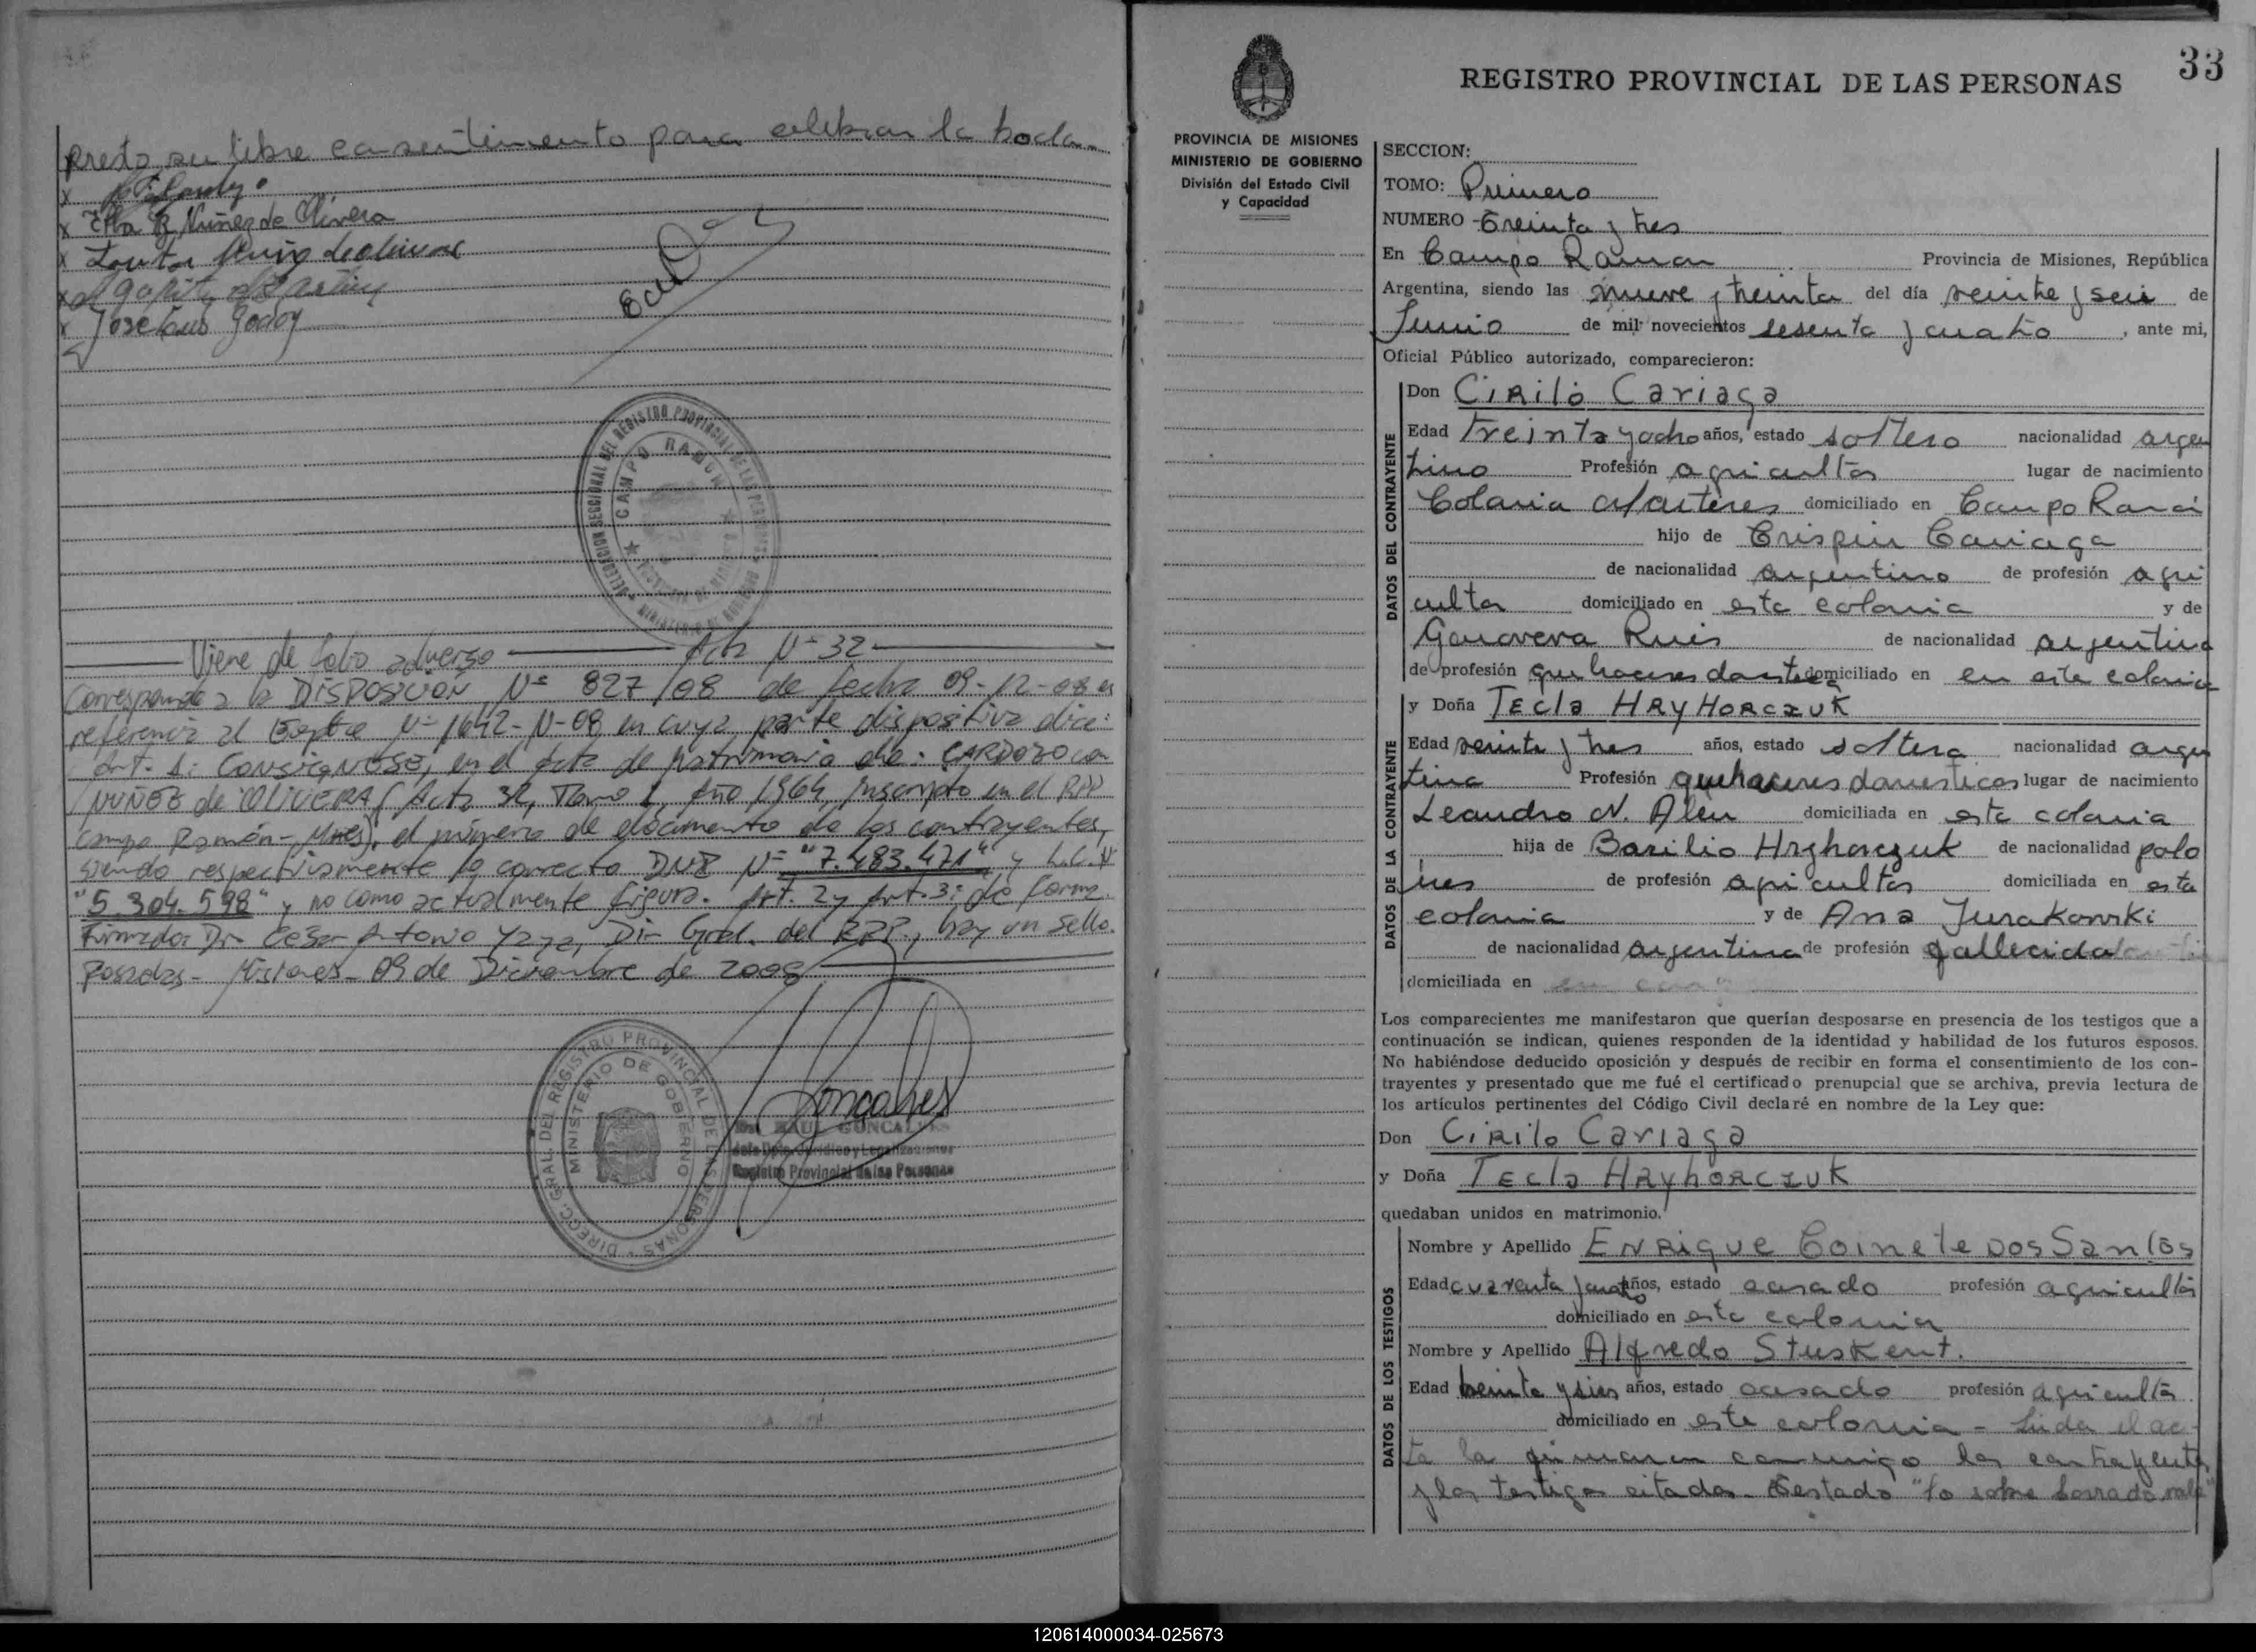 presto su libre consentimiento para celebrar la boda
x
x Elba R Nuñez de Olivera
x
x
x Jose Luis Godoy
DELEGACION SECCIONAL DEL REGISTRO PROVINCIAL DE LAS PERSONAS
CAMPO RAMON
Viene de folio adverso Acta Nº 32
Corresponde a la DISPOSICIÓN Nº 827/08 de fecha 09-12-08 en
referencia al Expte Nº 1642-N-08 en cuya parte dispositiva dice:
Art. 1: CONSIGNOSE, en el Acta de matrimonio de: CARDOZO con
NUÑEZ de OLIVERA (Acta 32, Tomo 1, Año 1964, Inscripto en el RPP
Campo Ramón-Mnes), el número de documento de los contrayentes,
siendo respectivamente lo correcto DNI Nº "7.483.471" y L.C. Nº
"5.304.598" y no como actualmente figura. Art. 2 y Art. 3: de forma.
Firmado: Dr Cesar Antonio Yaya, Dir Gral. del RPP, hay un sello.
Posadas - Misiones - 09 de Diciembre de 2008
DIRECC. GRAL. DEL REGISTRO PROVINCIAL DE LAS PERSONAS
MINISTERIO DE GOBIERNO
RAUL GONCALVES
Jefe Dpto. Jurídico y Legalizaciones
Registro Provincial de las Personas
33
REGISTRO PROVINCIAL DE LAS PERSONAS
PROVINCIA DE MISIONES
MINISTERIO DE GOBIERNO
División del Estado Civil
y Capacidad
SECCION:
TOMO: Primero
NUMERO Treinta y tres
En Campo Ramon Provincia de Misiones, República
Argentina, siendo las nueve y treinta del día veinte y seis de
Junio de mil novecientos sesenta y cuatro, ante mi,
Oficial Público autorizado, comparecieron:
DATOS DEL CONTRAYENTE
Don CIRILO Cariaga
Edad Treinta y ocho años, estado soltero nacionalidad argen
tino Profesión agricultor lugar de nacimiento
Colonia Martires domiciliado en Campo Ramon
hijo de Crispin Cariaga
de nacionalidad argentino de profesión agri
cultor domiciliado en esta colonia y de
Genoveva Ruis de nacionalidad argentina
de profesión quehaceres domestica domiciliado en en esta colonia
DATOS DE LA CONTRAYENTE
y Doña TEcla HRYHORCZUK
Edad veinte y tres años, estado soltera nacionalidad argen
tina Profesión quehaceres domesticos lugar de nacimiento
Leandro N. Alen domiciliada en esta colonia
hija de Basilio Hryhorczuk de nacionalidad polo
nes de profesión agricultor domiciliada en esta
colonia y de Ana Jurakowski
de nacionalidad argentina de profesión fallecida
domiciliada en
Los comparecientes me manifestaron que querían desposarse en presencia de los testigos que a
continuación se indican, quienes responden de la identidad y habilidad de los futuros esposos.
No habiéndose deducido oposición y después de recibir en forma el consentimiento de los con-
trayentes y presentado que me fué el certificado prenupcial que se archiva, previa lectura de
los artículos pertinentes del Código Civil declaré en nombre de la Ley que:
Don CIRILO Cariaga
y Doña TEcla HRyhORCZUK
quedaban unidos en matrimonio.
DATOS DE LOS TESTIGOS
Nombre y Apellido ENRique Coinete DOS Santos
Edad cuarenta y cuatro años, estado casado profesión agricultor
domiciliado en esta colonia
Nombre y Apellido Alfredo Stuskent.
Edad treinta y seis años, estado casado profesión agricultor
domiciliado en esta colonia - Leida el ac-
ta la firmaron conmigo los contrayentes
y los testigos citados. Testado "to sobre borrado vale"
120614000034-025673